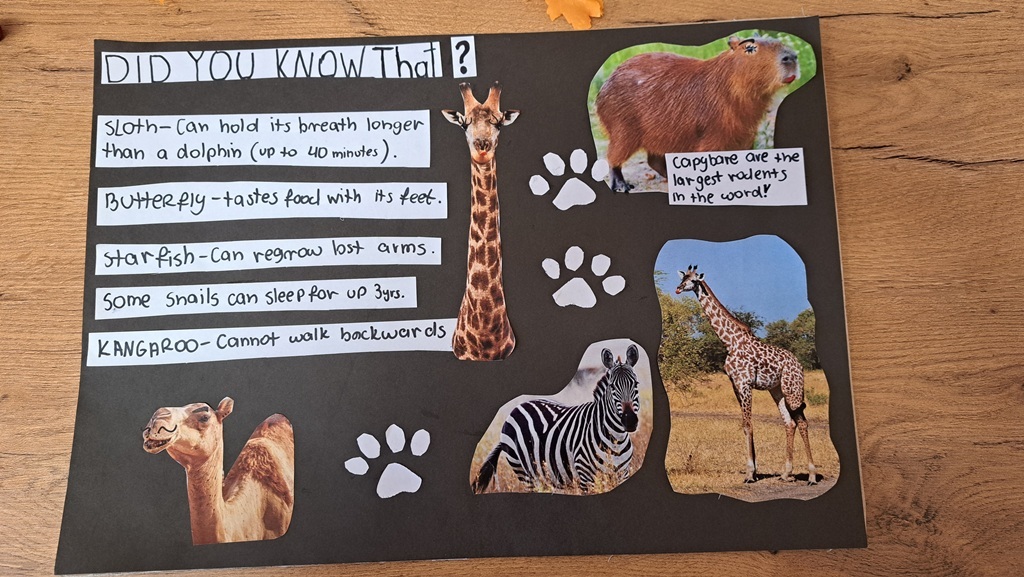 DID YOU KNOW That ?
SLOTH-Can hold its breath longer
than a dolphin (up to 40 minutes).
Butterfly-tastes food with its feet.
starfish-Can regrow lost arms.
Some snails can sleep for up 3yrs.
KANGAROO-Cannot walk backwards
Capybare are the
largest rodents
in the word!